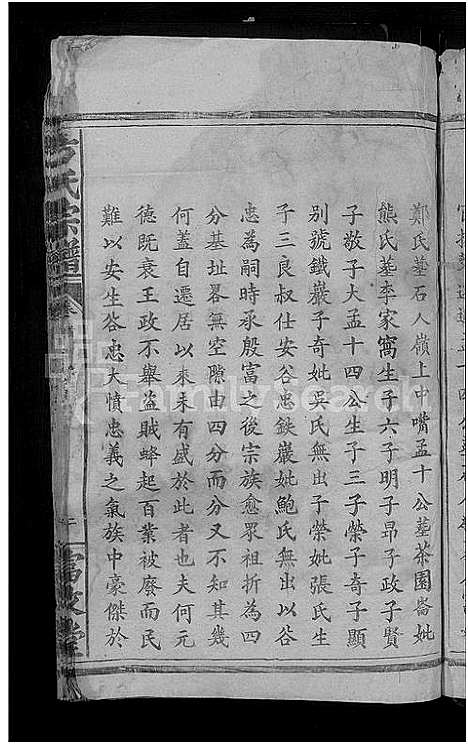 鄭氏墓石人嶺上中嘴孟十公墓茶園崙妣
熊氏墓李家窩生子六子明子昂子政子賢
子敬子大孟十四公生子三子榮子奇子顯
別號鐵巖子奇妣吳氏無出子榮妣張氏生
子三良叔仕安谷忠鉄巖妣鮑氏無出以谷
忠為嗣時承殷富之後宗族愈眾祖折為四
分基址畧無空隙由四分而分又不知其幾
何蓋自遷居以來未有盛於此者也夫何元
德既衰王政不舉盗賊蜂起百業被廢而民
難以安生谷忠大憤忠義之氣族中豪傑於
氏宗譜
FamilySearch